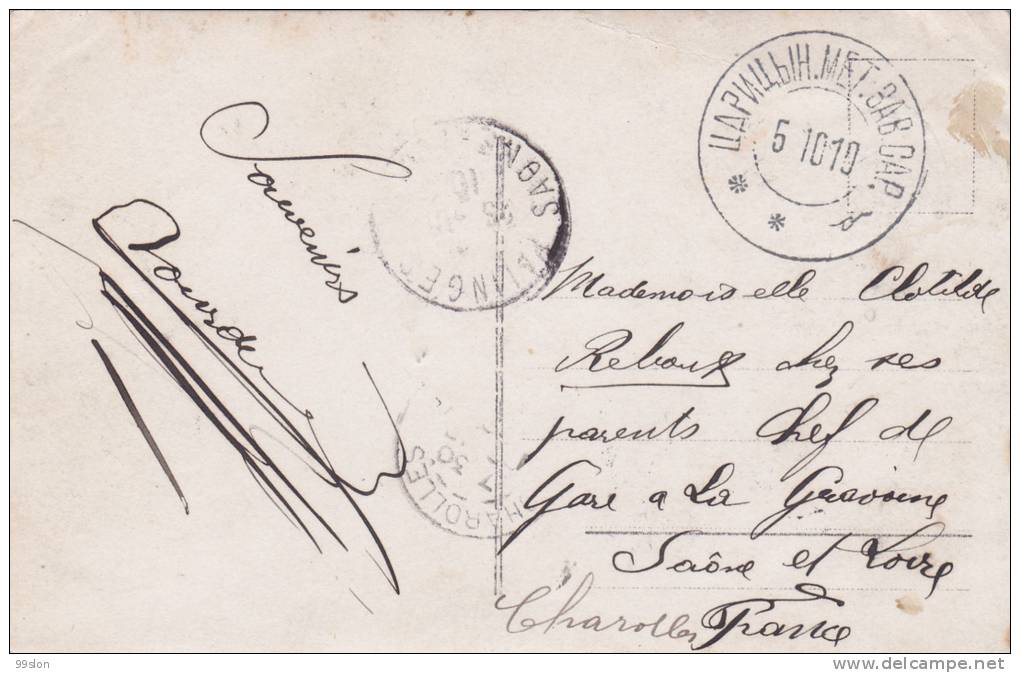 Souvenirs
ЦАРИЦЫН.МЕТ.ЗАВ САР.
5 10 10
SAONE
10
CHAROLLES
30
Mademoiselle Clotilde
Reboux chez ses
parents Chef de
Gare a La
Saône et Loire
Charolles France
99slon
www.delcampe.net